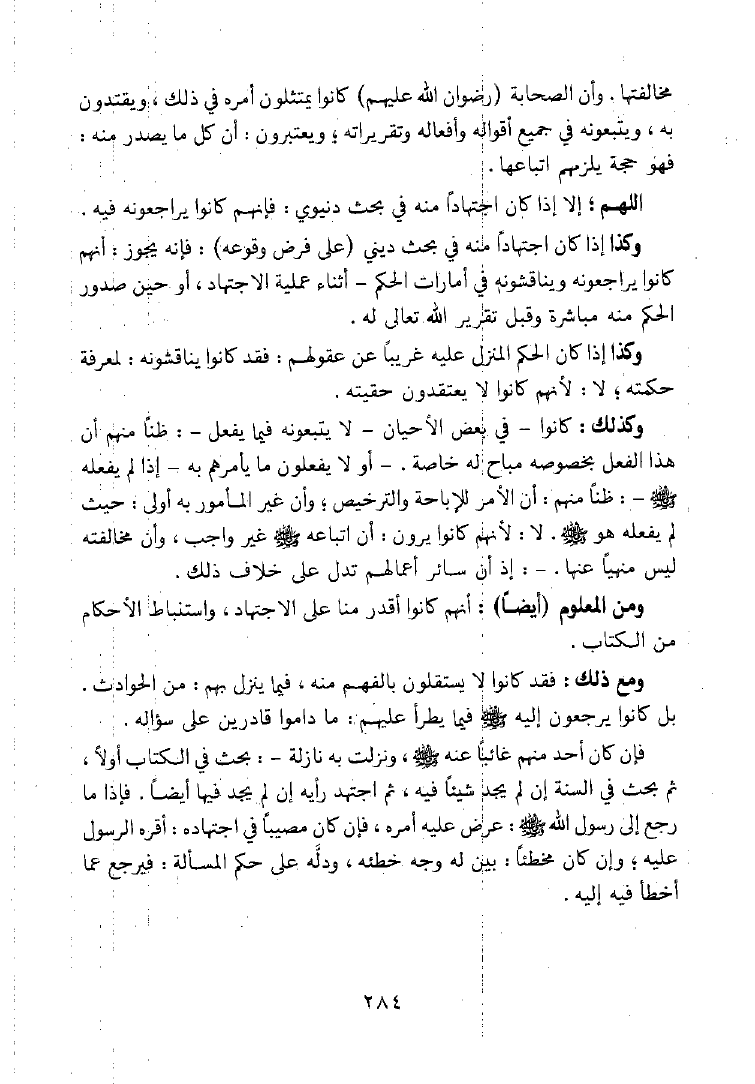 مخالفتها . وأن الصحابة (رضوان الله عليهم) كانوا يمتثلون أمره في ذلك ، ويقتدون
به ، ويتبعونه في جميع أقواله وأفعاله وتقريراته ؛ ويعتبرون : أن كل ما يصدر منه :
فهو حجة يلزمهم اتباعها .
اللهم ؛ إلا إذا كان اجتهاداً منه في بحث دنيوي : فإنهم كانوا يراجعونه فيه .
وكذا إذا كان اجتهاداً منه في بحث ديني (على فرض وقوعه) : فإنه يجوز : أنهم
كانوا يراجعونه ويناقشونه في أمارات الحكم – أثناء عملية الاجتهاد ، أو حين صدور
الحكم منه مباشرة وقبل تقرير الله تعالى له .
وكذا إذا كان الحكم المنزل عليه غريباً عن عقولهم : فقد كانوا يناقشونه : لمعرفة
حكمته ؛ لا : لأنهم كانوا لا يعتقدون حقيته .
وكذلك : كانوا – في بعض الأحيان – لا يتبعونه فيما يفعل – : ظناً منهم أن
هذا الفعل بخصوصه مباح له خاصة . – أو لا يفعلون ما يأمرهم به – إذا لم يفعله
ﷺ – : ظناً منهم : أن الأمر للإباحة والترخيص ؛ وأن غير المأمور به أولى : حيث
لم يفعله هو ﷺ . لا : لأنهم كانوا يرون : أن اتباعه ﷺ غير واجب ، وأن مخالفته
ليس منهياً عنها . – : إذ أن سائر أعمالهم تدل على خلاف ذلك .
ومن المعلوم (أيضاً) : أنهم كانوا أقدر منا على الاجتهاد ، واستنباط الأحكام
من الكتاب .
ومع ذلك : فقد كانوا لا يستقلون بالفهم منه ، فيما ينزل بهم : من الحوادث .
بل كانوا يرجعون إليه ﷺ فيما يطرأ عليهم : ما داموا قادرين على سؤاله .
فإن كان أحد منهم غائباً عنه ﷺ ، ونزلت به نازلة – : بحث في الكتاب أولاً ،
ثم بحث في السنة إن لم يجد شيئاً فيه ، ثم اجتهد رأيه إن لم يجد فيها أيضاً . فإذا ما
رجع إلى رسول الله ﷺ : عرض عليه أمره ، فإن كان مصيباً في اجتهاده : أقره الرسول
عليه ؛ وإن كان مخطئاً : بين له وجه خطئه ، ودلَّه على حكم المسألة : فيرجع عما
أخطأ فيه إليه .
٢٨٤